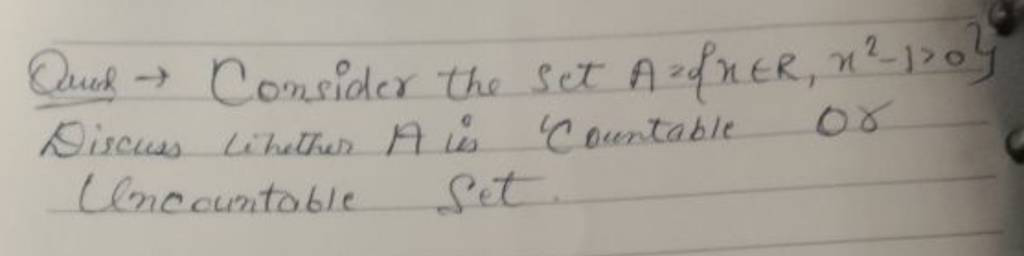 Ques → Consider the set A = {x ∈ R, x² - 1 > 0}
Discuss whether A is Countable or
Uncountable Set.